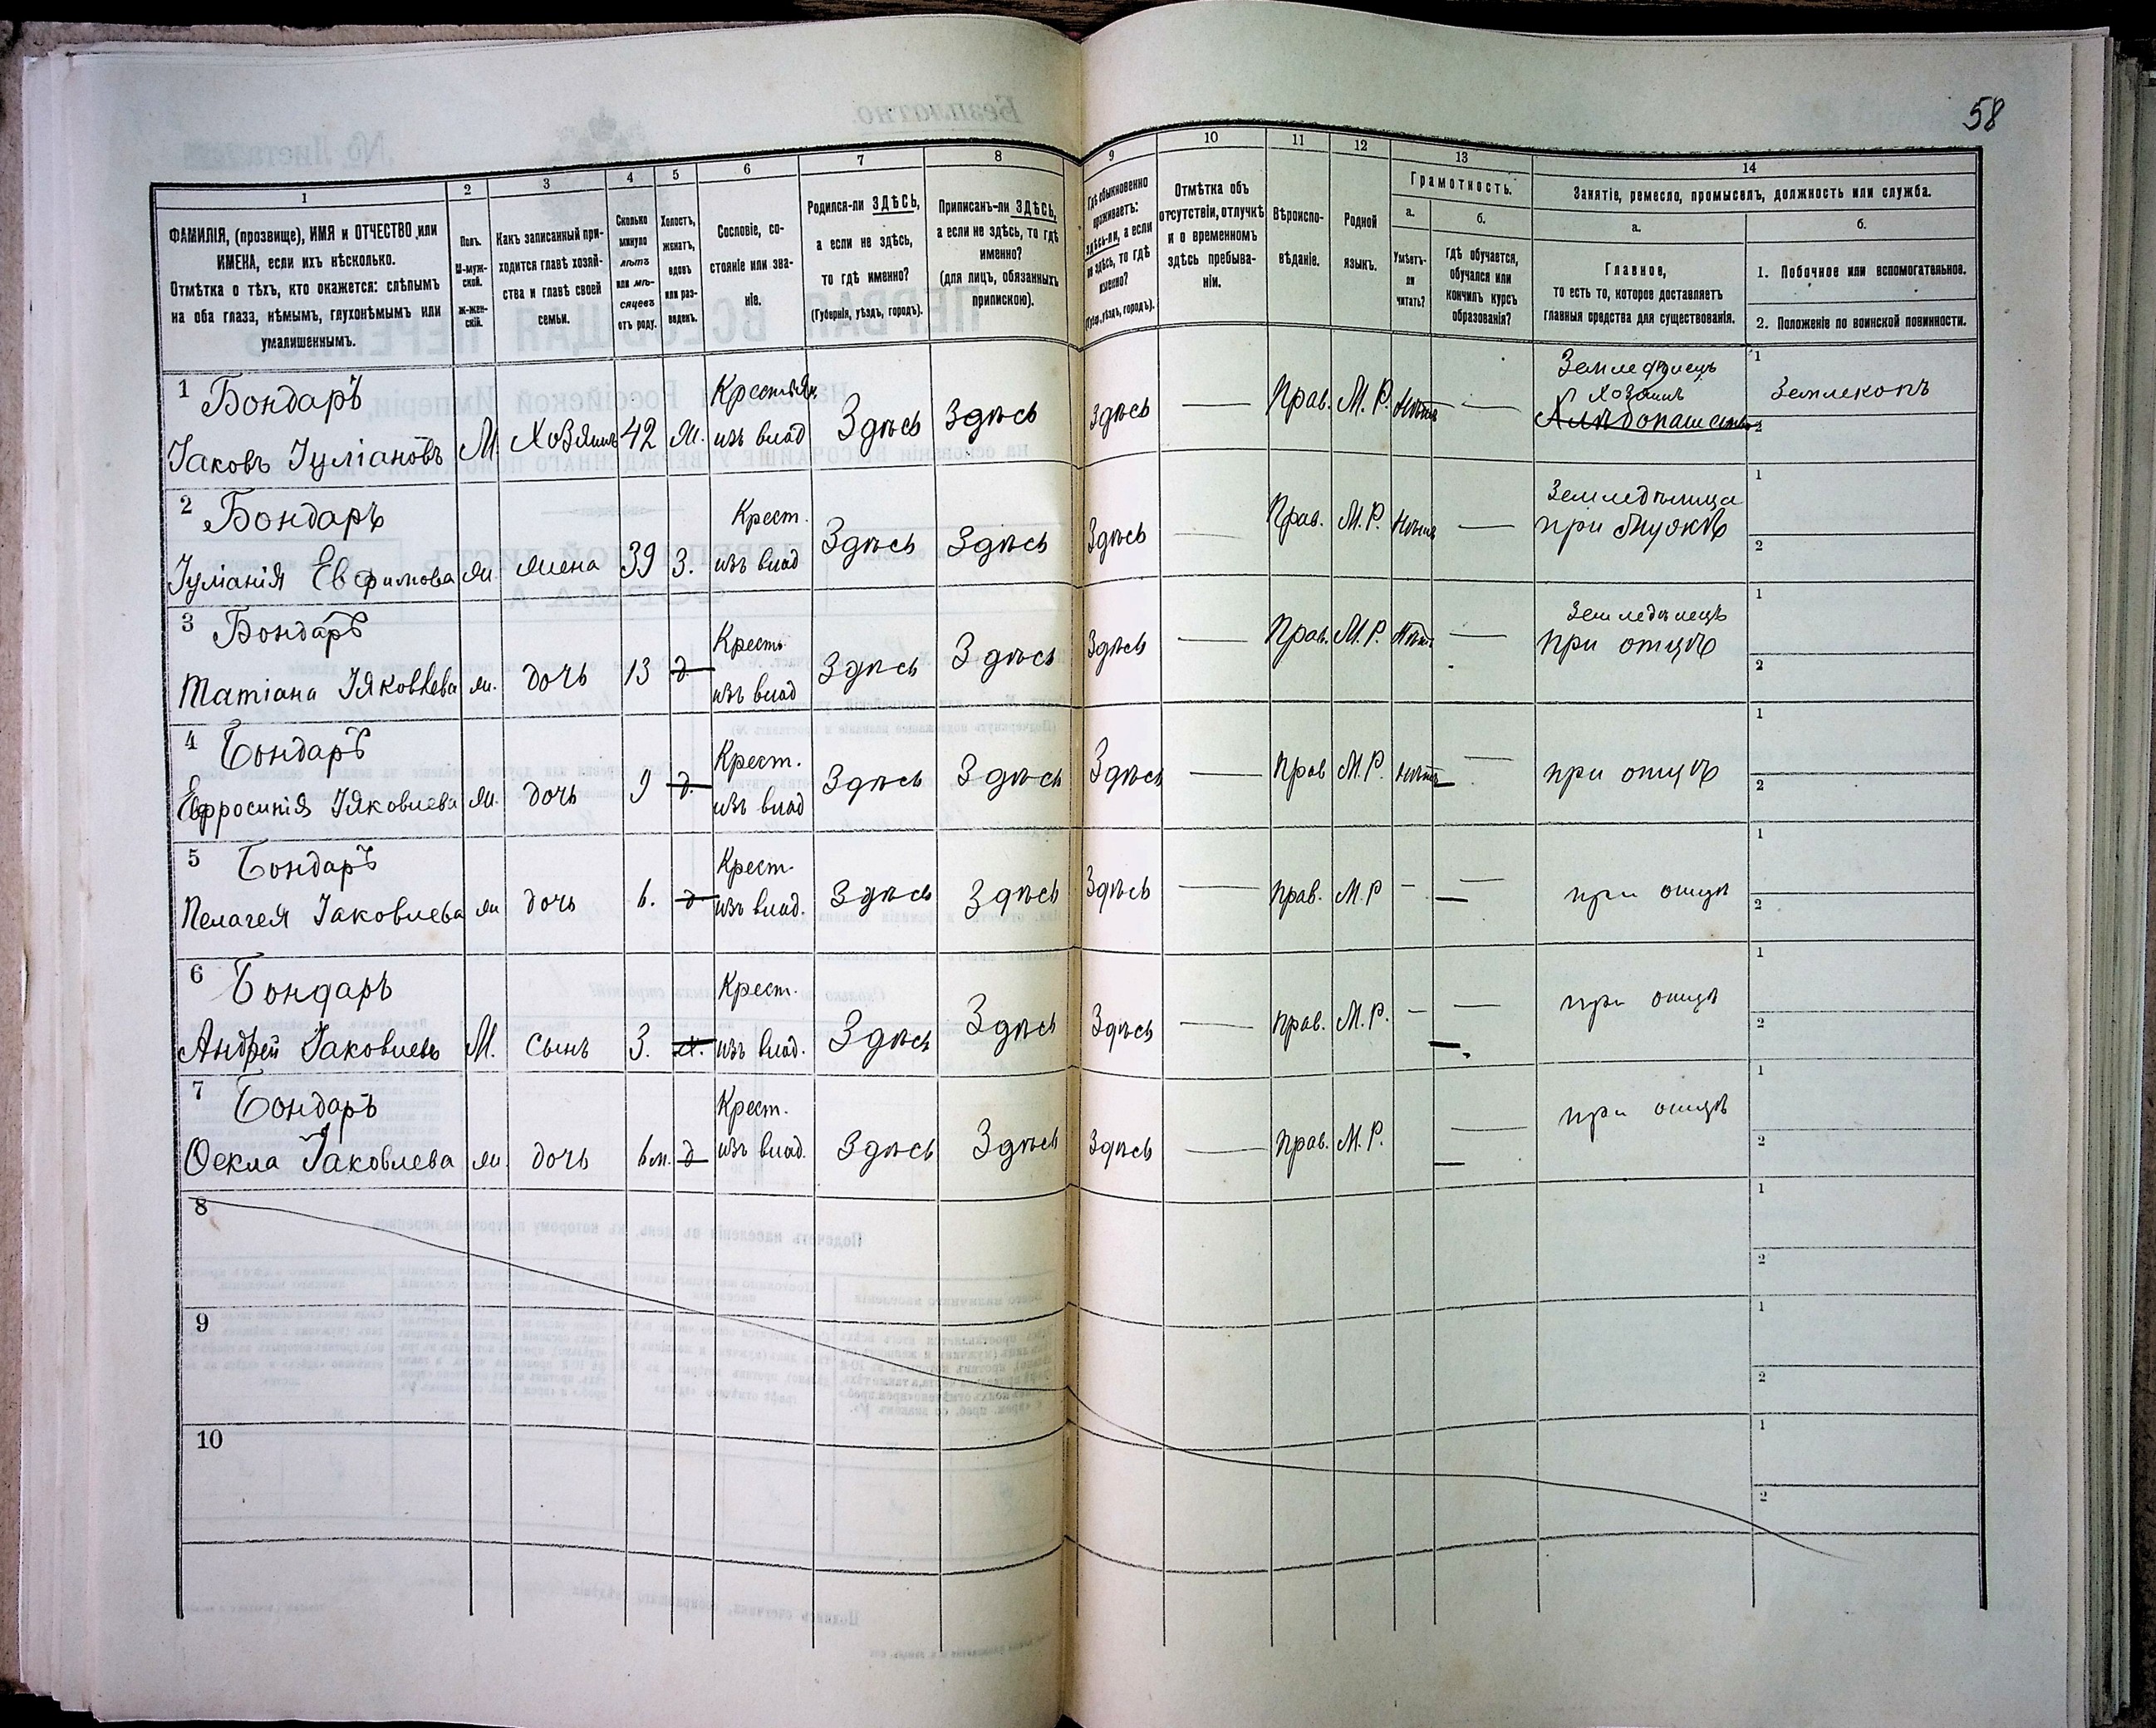 58
1
2
3
4
5
6
7
8
9
10
11
12
13
14
ФАМИЛІЯ, (прозвище), ИМЯ и ОТЧЕСТВО или
ИМЕНА, если ихъ нѣсколько.
Отмѣтка о тѣхъ, кто окажется: слѣпымъ
на оба глаза, нѣмымъ, глухонѣмымъ или
умалишеннымъ.
Полъ.
М-муж-
ской.
Ж-жен-
скій.
Какъ записанный при-
ходится главѣ хозяй-
ства и главѣ своей
семьи.
Сколько
минуло
лѣтъ
или мѣ-
сяцевъ
отъ роду.
Холостъ,
женатъ,
вдовъ
или раз-
веденъ.
Сословіе, со-
стояніе или зва-
ніе.
Родился-ли ЗДѢСЬ,
а если не здѣсь,
то гдѣ именно?
(Губернія, уѣздъ, городъ).
Приписанъ-ли ЗДѢСЬ,
а если не здѣсь, то гдѣ
именно?
(для лицъ, обязанныхъ
припискою).
Гдѣ обыкновенно
проживаетъ:
здѣсь-ли, а если
не здѣсь, то гдѣ
именно?
(Губер., уѣздъ, городъ).
Отмѣтка объ
отсутствіи, отлучкѣ
и о временномъ
здѣсь пребыва-
ніи.
Вѣроиспо-
вѣданіе.
Родной
языкъ.
Грамотность.
а.
б.
Умѣетъ-
ли
читать?
гдѣ обучается,
обучался или
кончилъ курсъ
образованія?
Занятіе, ремесло, промыселъ, должность или служба.
а.
б.
Главное,
то есть то, которое доставляетъ
главныя средства для существованія.
1. Побочное или вспомогательное.
2. Положеніе по воинской повинности.
1 Бондаръ
Іаковъ Іуліановъ М. Хозяинъ 42 М. изъ влад Здѣсь Здѣсь Здѣсь — Прав. М. Р. Нѣтъ —
Земледѣлецъ
Хозяинъ
Хлѣбопашество
1 Землекопъ
2
2 Бондаръ
Іуліанія Евфимова ж. жена 39 З. Крест. изъ влад Здѣсь Здѣсь Здѣсь — Прав. М. Р. Нѣтъ —
Земледѣлица
при
1
2
3 Бондаръ
Татіана Іяковлева ж. дочь 13 д. Крестъ изъ влад Здѣсь Здѣсь Здѣсь — Прав. М. Р. —
Земледѣлецъ
при отцѣ
1
2
4 Бондаръ
Ефросинія Іяковлева ж. дочь 9 д. Крест. изъ влад Здѣсь Здѣсь Здѣсь — Прав М. Р. Нѣтъ — при отцѣ
1
2
5 Бондаръ
Пелагея Іаковлева ж дочь 6. д Крест. изъ влад. Здѣсь Здѣсь Здѣсь — Прав. М. Р - — при отцѣ
1
2
6 Бондаръ
Андрей Іаковлевъ М. сынъ 3. Крест. изъ влад. Здѣсь Здѣсь Здѣсь — Прав. М. Р. - — при отцѣ
1
2
7 Бондаръ
Ѳекла Іаковлева ж. дочь 6 м. д Крест. изъ влад. Здѣсь Здѣсь Здѣсь — Прав. М. Р. — при отцѣ
1
2
8
1
2
9
1
2
10
1
2